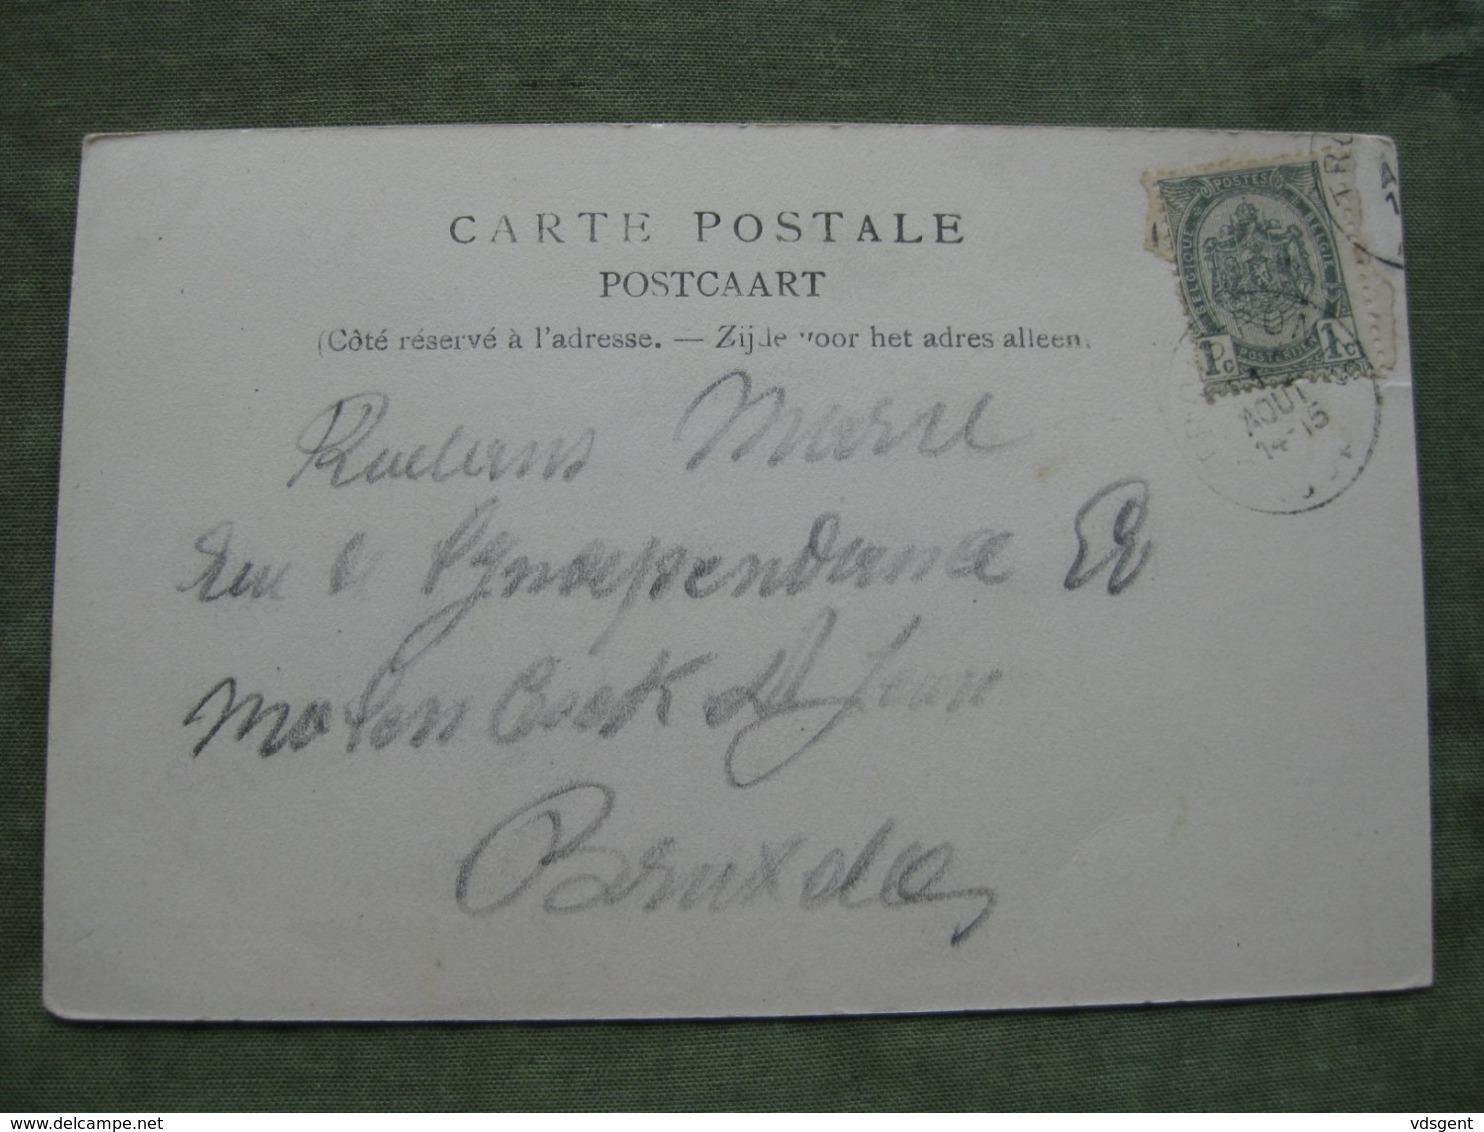 CARTE POSTALE
POSTCAART
(Côté réservé à l'adresse. — Zijde voor het adres alleen.
POSTES
BELGIQUE BELGIE
1c 1c
AOUT
14-15
Roelans Marie
Rue d l'Independance
Molenbeek St Jean
Bruxelles
delcampe.net
vdsgent